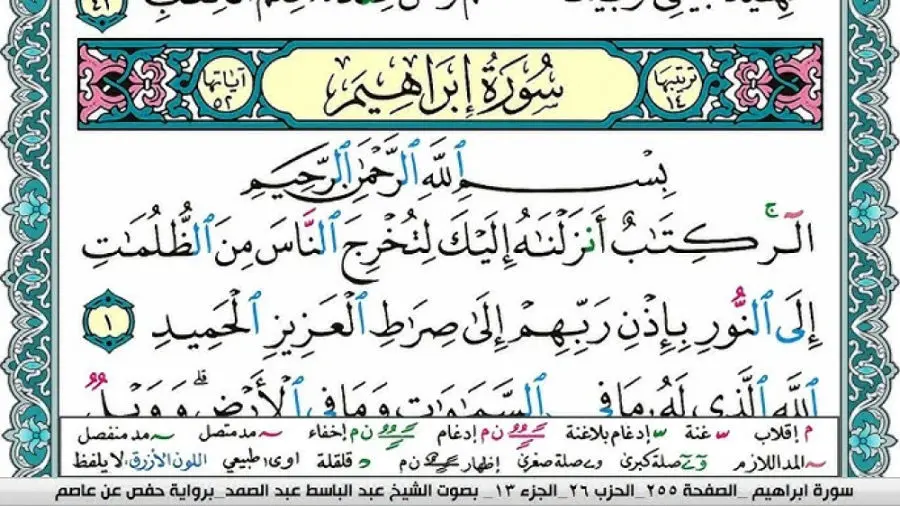 ٤٣
ترتيبها ١٤ سُورَةُ إِبْرَاهِيمَ آياتها ٥٢
بِسْمِ ٱللَّهِ ٱلرَّحْمَٰنِ ٱلرَّحِيمِ
الٓر ۚ كِتَٰبٌ أَنزَلْنَٰهُ إِلَيْكَ لِتُخْرِجَ ٱلنَّاسَ مِنَ ٱلظُّلُمَٰتِ
إِلَى ٱلنُّورِ بِإِذْنِ رَبِّهِمْ إِلَىٰ صِرَٰطِ ٱلْعَزِيزِ ٱلْحَمِيدِ ١
ٱللَّهِ ٱلَّذِى لَهُۥ مَا فِى ٱلسَّمَٰوَٰتِ وَمَا فِى ٱلْأَرْضِ ۗ وَوَيْلٌ
م إقلاب غنة إدغام بلاغنة ن م إدغام ن م إخفاء مد متصل مد منفصل
المد اللازم صلة كبرى و صلة صغرى إظهار ن م قلقلة اوى طبيعي اللون الأزرق لا يلفظ
سورة ابراهيم _الصفحة ٢٥٥_الحزب ٢٦_الجزء ١٣_ بصوت الشيخ عبد الباسط عبد الصمد_برواية حفص عن عاصم